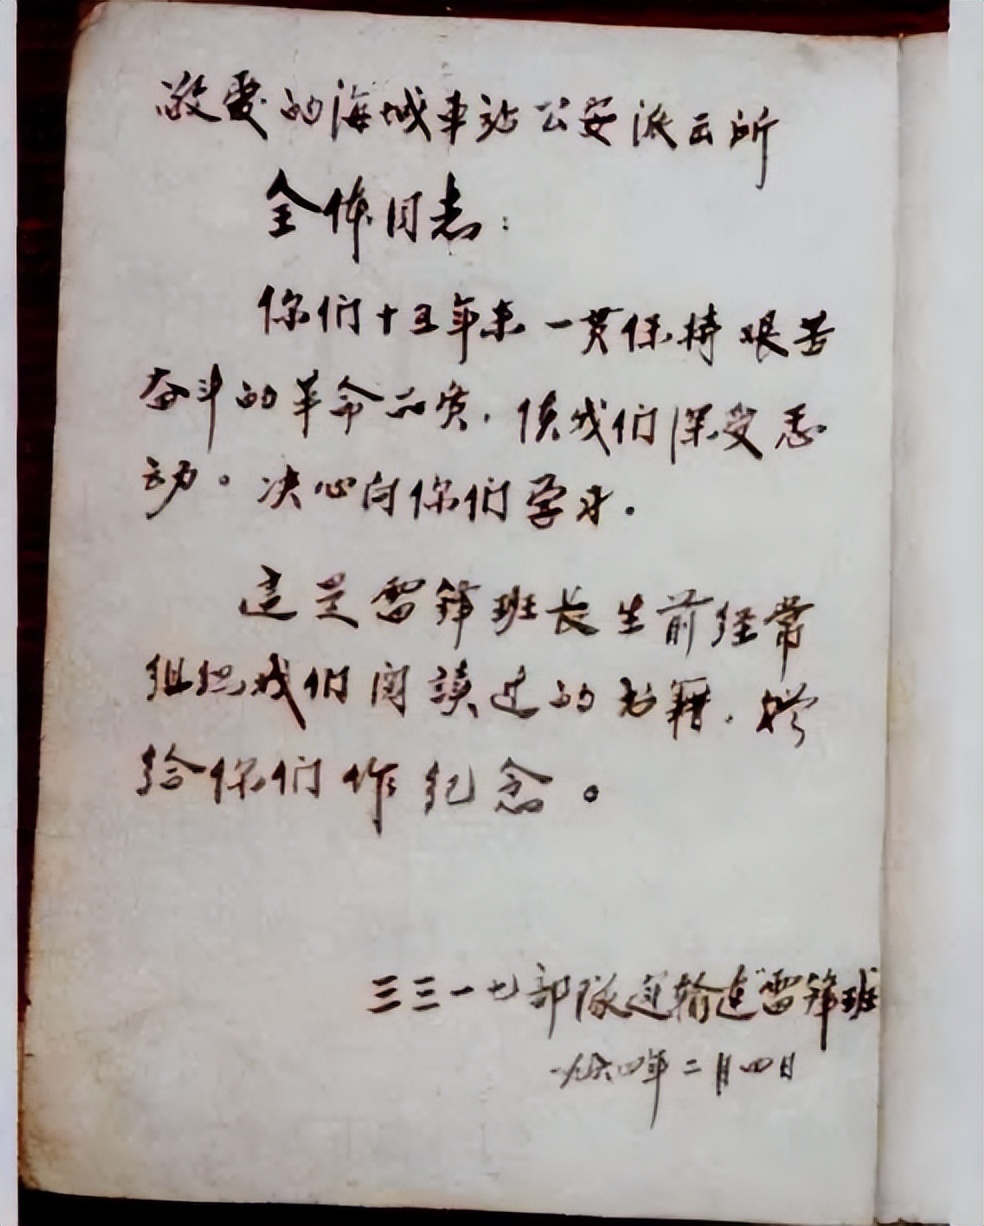 敬爱的海城車站公安派出所
全体同志：
你们十五年来一贯保持艰苦
奋斗的革命品质，使我们深受感
动。决心向你们学习。
这是雷锋班长生前经常
组织我们阅读过的书籍，赠
给你们作纪念。
三三一七部隊运输連"雷锋班
一九六四年二月四日